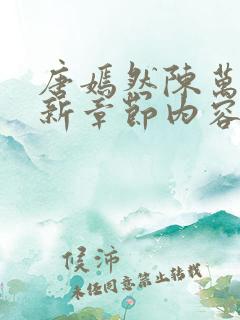 唐嫣然陳萬
新章節內容
候沛
未任同意禁止转载